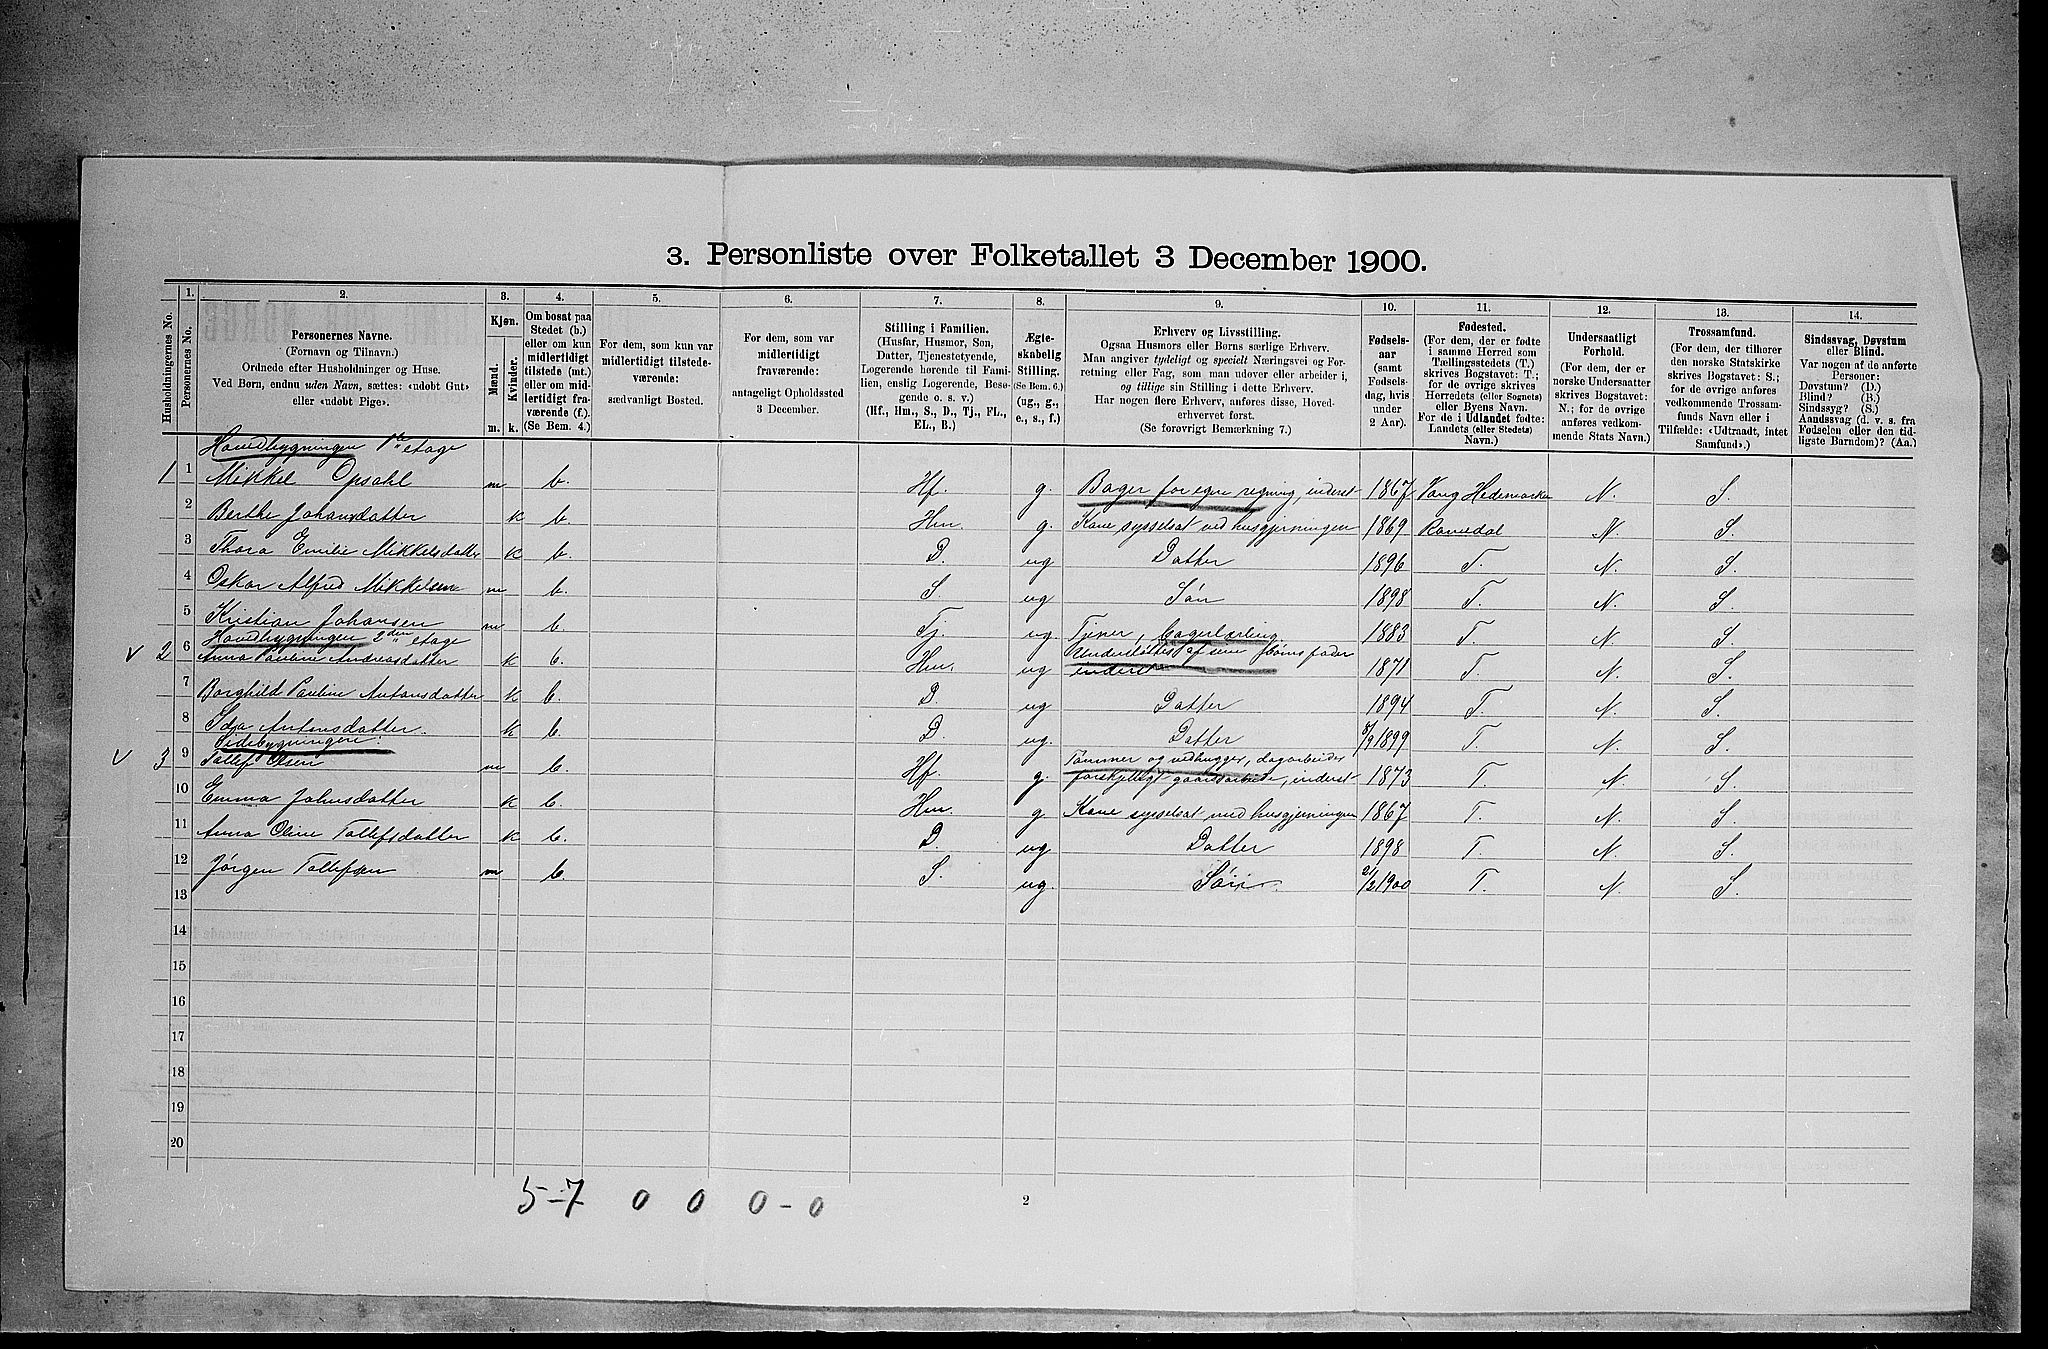 3. Personliste over Folketallet 3 December 1900.
Husholdningernes No.
1.
Personernes No.
2.
Personernes Navne.
(Fornavn og Tilnavn.)
Ordnede efter Husholdninger og Huse.
Ved Børn, endnu uden Navn, sættes: «udøbt Gut»
eller «udøbt Pige».
3.
Kjøn.
Mænd.
Kvinder.
m. k.
4.
Om bosat paa
Stedet (b.)
eller om kun
midlertidigt
tilstede (mt.)
eller om mid-
lertidigt fra-
værende (f.).
(Se Bem. 4.)
5.
For dem, som kun var
midlertidigt tilstede-
værende:
sædvanligt Bosted.
6.
For dem, som var
midlertidigt
fraværende:
antageligt Opholdssted
3 December.
7.
Stilling i Familien.
(Husfar, Husmor, Søn,
Datter, Tjenestetyende,
Logerende hørende til Fami-
lien, enslig Logerende, Besø-
gende o. s. v.)
(Hf., Hm., S., D., Tj., FL.,
EL., B.)
8.
Ægte-
skabelig
Stilling.
(Se Bem. 6.)
(ug., g.,
e., s., f.)
9.
Erhverv og Livsstilling.
Ogsaa Husmors eller Børns særlige Erhverv.
Man angiver tydeligt og specielt Næringsvei og For-
retning eller Fag, som man udover eller arbeider i,
og tillige sin Stilling i dette Erhverv.
Har nogen flere Erhverv, anføres disse, Hoved-
erhvervet først.
(Se forøvrigt Bemærkning 7.)
10.
Fødsels-
aar
(samt
Fødsels-
dag, hvis
under
2 Aar).
11.
Fødested.
(For dem, der er fødte
i samme Herred som
Tællingsstedets (T.)
skrives Bogstavet: T.;
for de øvrige skrives
Herredets (eller Sognets)
eller Byens Navn.
For de i Udlandet fødte:
Landets (eller Stedets)
Navn.)
12.
Undersaatligt
Forhold.
(For dem, der er
norske Undersaatter
skrives Bogstavet:
N.; for de øvrige
anføres vedkom-
mende Stats Navn.)
13.
Trossamfund.
(For dem, der tilhører
den norske Statskirke
skrives Bogstavet: S.;
for de øvrige anføres
vedkommende Trossam-
funds Navn eller i
Tilfælde: «Udtraadt, intet
Samfund».)
14.
Sindssvag, Døvstum
eller Blind.
Var nogen af de anførte
Personer:
Døvstum? (D.)
Blind? (B.)
Sindssyg? (S.)
Aandssvag (d. v. s. fra
Fødselen eller den tid-
ligste Barndom)? (Aa.)
Hovedbygningen 1ste etage
1 1 Mikkel Opsahl m b. Hf. g. Bager for egen regning, inderst 1867 Vang Hedemarken N. S.
2 Berthe Johansdatter k b Hm. g. Kone sysselsat ved husgjerningen 1869 Romedal N. S.
3 Thora Emilie Mikkelsdatter k b. D. ug Datter 1896 T. N. S.
4 Oskar Alfred Mikkelsen m b. S. ug Søn 1898 T. N. S.
5 Kristian Johansen m b. Tj. ug. Tjener, bagerlærling. 1883 T. N. S.
Hovedbygningen 2den etage
v 2 6 Anna Pauline Andreasdatter k b. Hm. ug Understøttes af sine børns fader
inderst 1871 T. N. S.
7 Borghild Pauline Antonsdatter k b. D. ug Datter 1894 T. N. S.
8 Ida Antonsdatter. k b. D. ug. Datter 8/9 1899 T. N. S.
Sidebygningen.
v 3 9 Tollef Olsen m b. Hf. g. Tømmer og vedhugger, dagarbeider
forskjelligt gaardsarbeide, inderst 1873 T. N S.
10 Emma Johnsdatter k b. Hm. g. Kone sysselsat med husgjerningen 1867 T. N. S.
11 Anna Oline Tollefsdatter k b. D. ug Datter 1898 T. N. S.
12 Jørgen Tollefsen m b. S. ug. Søn. 21/2 1900 T. N. S.
13
14
15
16
17
18
19
20
5-7 0 0 0-0
2